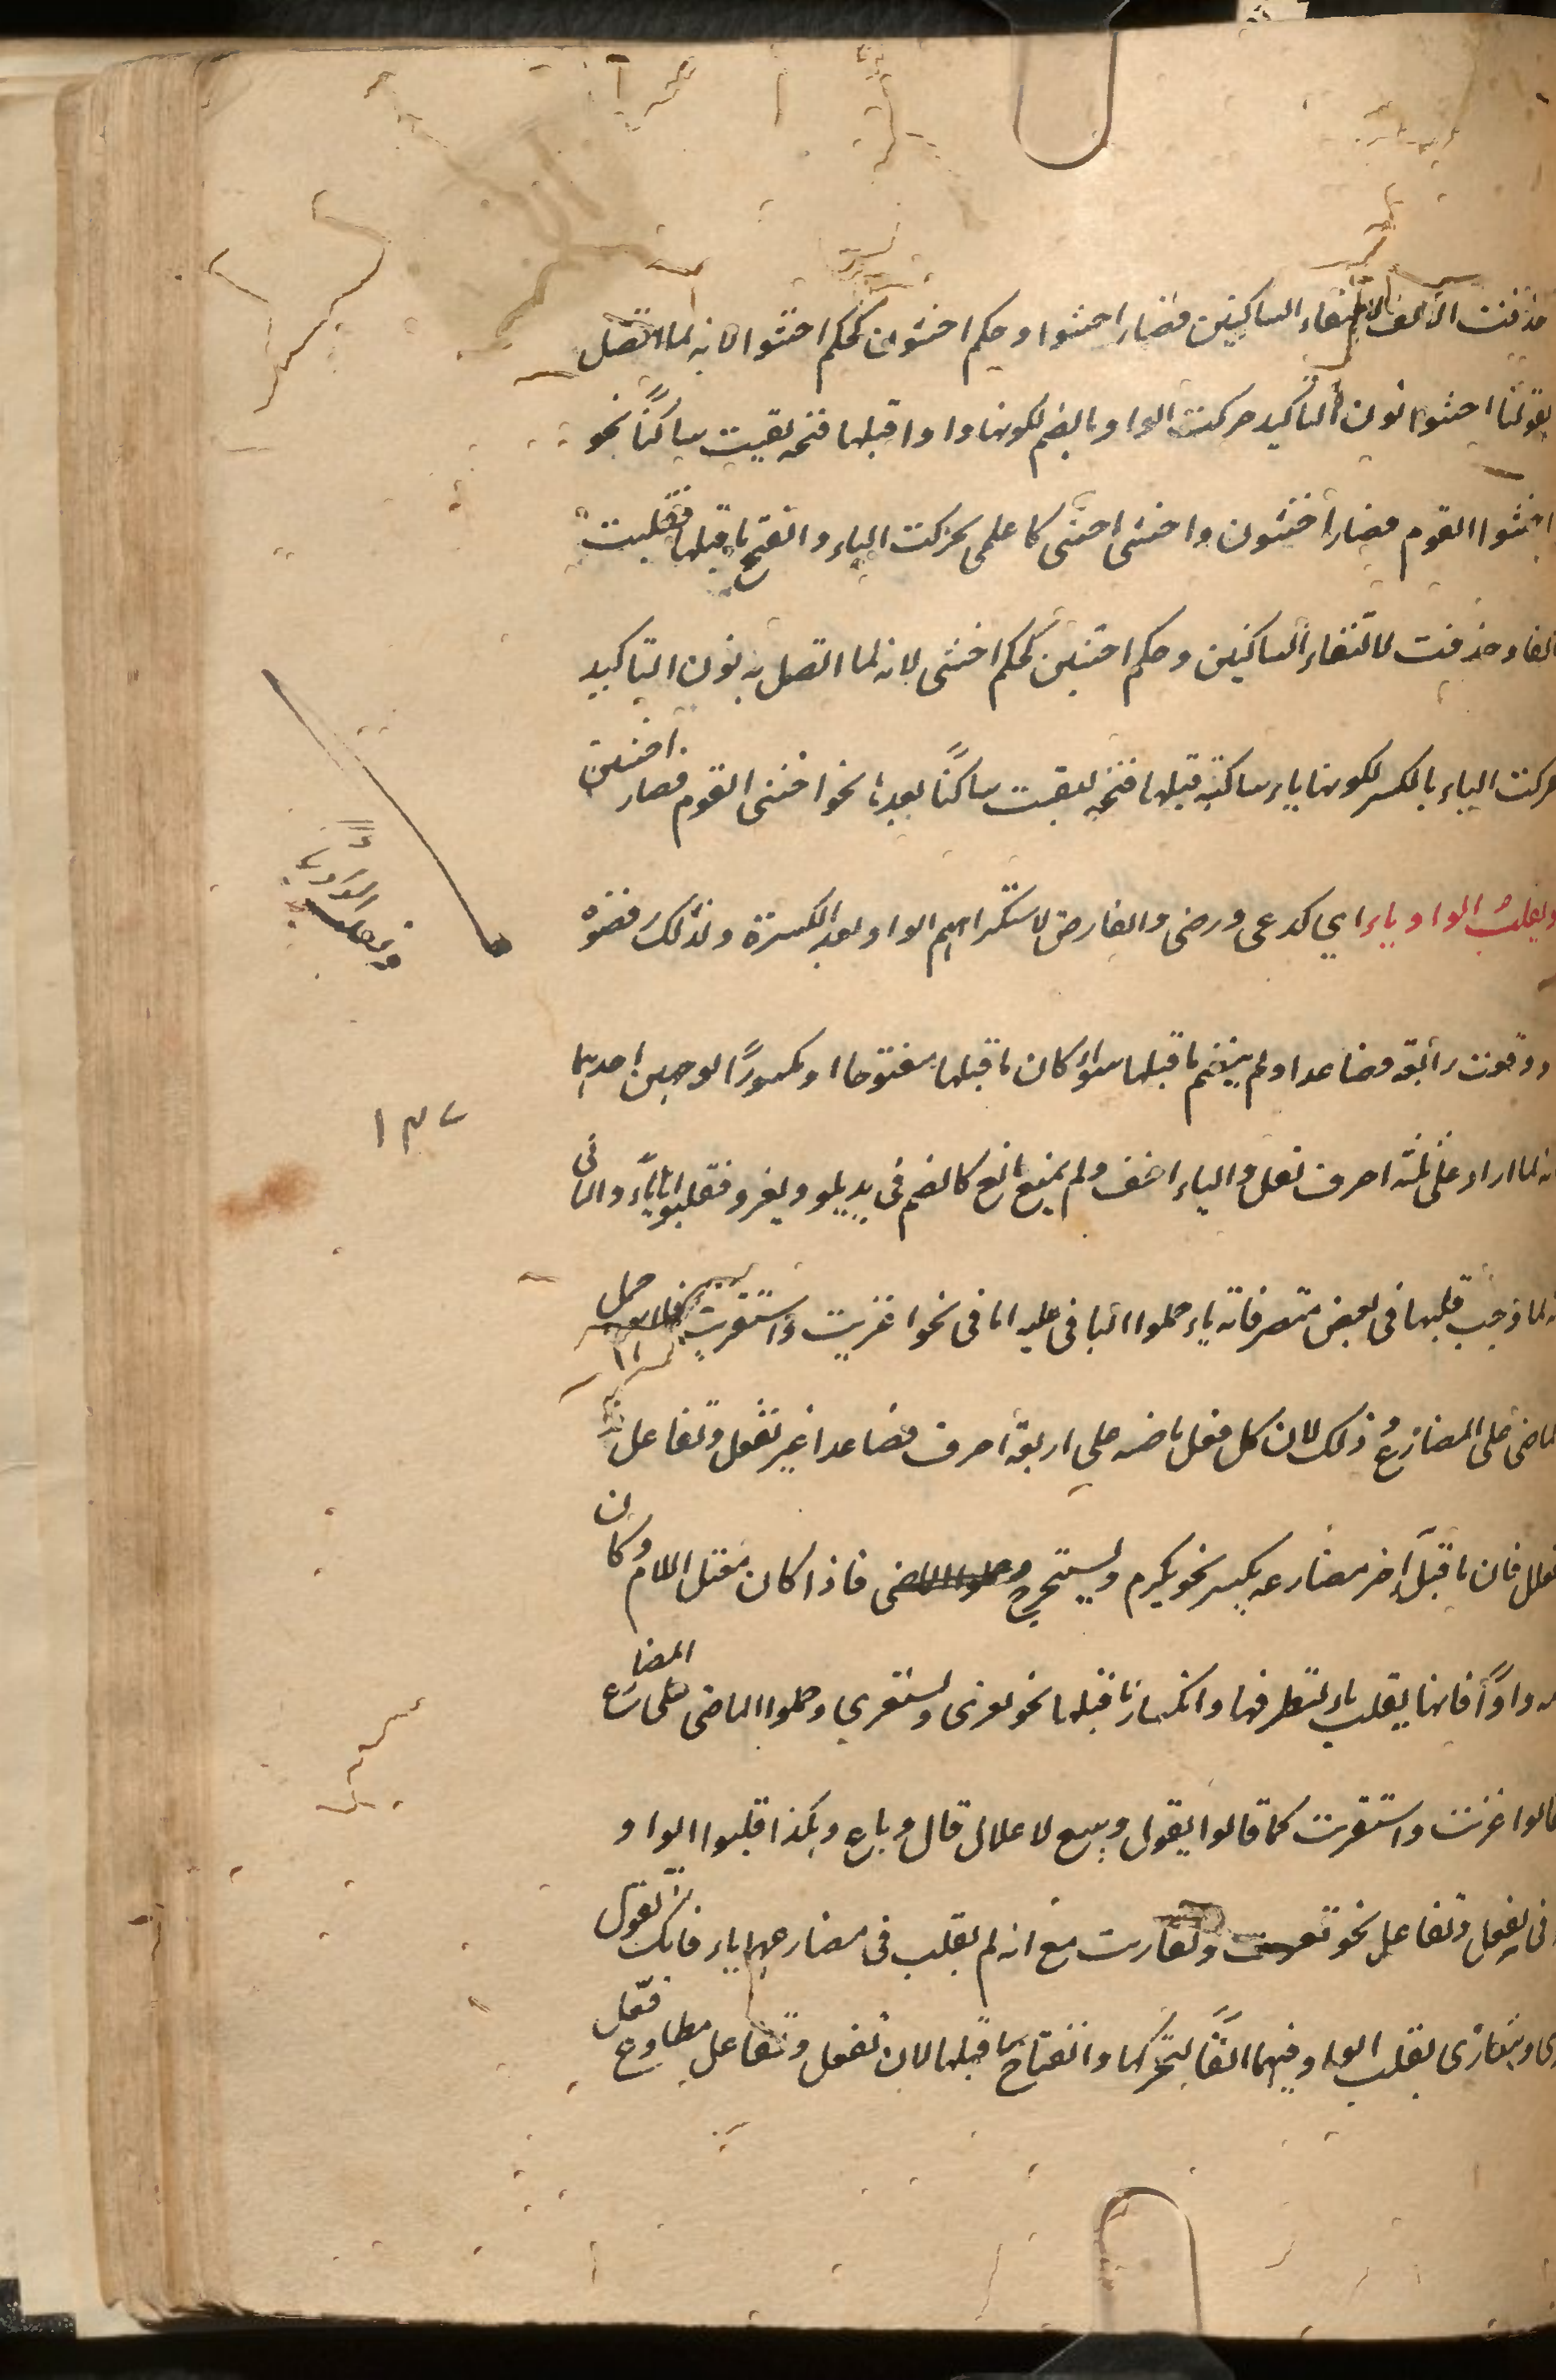 حذفت الالف لالتقاء الساكنين فصار اخشوا وحكم اخشون كحكم اخشوا لانه لما اتصل
بقولنا اخشوا نون التاكيد حركت الواو بالضم لكونها واوا قبلها فتحة لقيت ساكنًا نحو
اخشوا القوم فصار اخشون واخشى اخشى كاعلمى تحركت الياء وانفتح ما قبلها فقلبت
الفا وحذفت لالتقاء الساكنين وحكم اخشين كحكم اخشى لانه لما اتصل به نون التاكيد
حركت الياء بالكسر لكونها ياء ساكنة قبلها فتحة لقيت ساكنًا بعدها نحو اخشى القوم فصار اخشين
ويقلب الواو ياء اي كدعى ورضى والغازى لاستكراههم الواو بعد الكسرة ولذلك رفضوه
ووقعت رابعة فصاعدا ولم ينضم ما قبلها سواء كان ما قبلها مفتوحا او مكسورًا لوجهين احدهما
انه لما زاد على ثلثة احرف ثقل والياء اخف ولم يمنع مانع كالضم فى يدعو ويغزو فقلبوها ياءً والثانى
انه لما وجب قلبها فى بعض متصرفاته ياء حملوا الباقى عليه اما فى نحو اغزيت واستغزيت حمل
الماضى على المضارع وذلك لان كل فعل ماضيه على اربعة احرف فصاعدا غير تفعل وتفاعل
وتفعلل فان ما قبل آخر مضارعه يكسر نحو يكرم ويستخرج فاذا كان معتل اللام وكان
لامه واوًا فانها يقلب ياء لتطرفها وانكسار ما قبلها نحو يغزى ويستغزي وحملوا الماضى على المضارع
فقالوا اغزيت واستغزيت كما قالوا يقول ويبيع لاعلال قال وباع وهكذا قلبوا الواو
فى تفعل وتفاعل نحو وتغازيت مع انه لم يقلب فى مضارعهما ياء فانك تقول
ويتغازى بقلب الواو فيهما الفًا لتحركها وانفتاح ما قبلها لان تفعل وتفاعل مطاوع فعّل